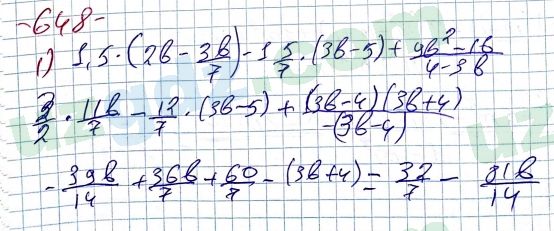 -648-
1) 1,5·(2b - 3b/7) - 1 5/7·(3b-5) + 9b²-16/4-3b
3/2·11b/7 - 12/7·(3b-5) + (3b-4)(3b+4)/-(3b-4)
-39b/14 + 36b/7 + 60/7 - (3b+4) = 32/7 - 81b/14